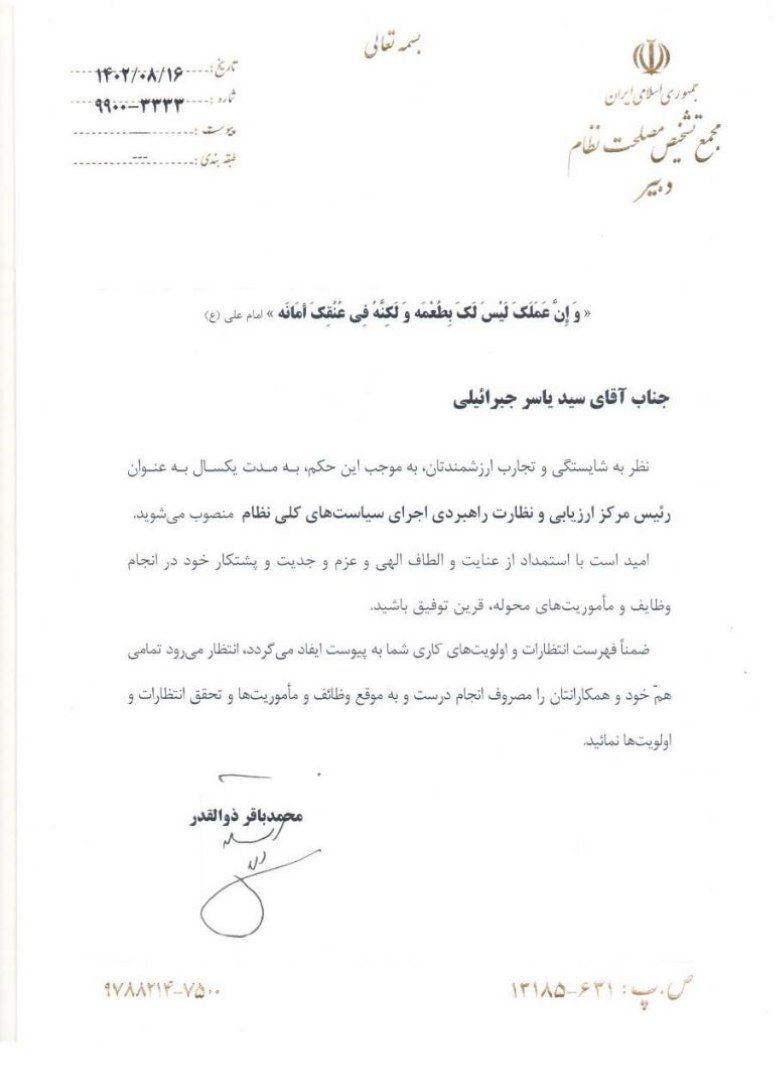 بسمه تعالی
جمهوری اسلامی ایران
مجمع تشخیص مصلحت نظام
دبیر
تاریخ: ۱۴۰۲/۰۸/۱۶
شماره: ۹۹۰۰-۳۳۳۳
پیوست: ---
طبقه بندی: ---
« وَ إِنَّ عَمَلَکَ لَیْسَ لَکَ بِطُعْمَه وَ لَکِنَّهُ فِی عُنُقِکَ أَمَانَه » امام علی (ع)
جناب آقای سید یاسر جبرائیلی
نظر به شایستگی و تجارب ارزشمندتان، به موجب این حکم، به مدت یکسال به عنوان
رئیس مرکز ارزیابی و نظارت راهبردی اجرای سیاست‌های کلی نظام منصوب می‌شوید.
امید است با استمداد از عنایت و الطاف الهی و عزم و جدیت و پشتکار خود در انجام
وظایف و مأموریت‌های محوله، قرین توفیق باشید.
ضمناً فهرست انتظارات و اولویت‌های کاری شما به پیوست ایفاد می‌گردد، انتظار می‌رود تمامی
همّ خود و همکارانتان را مصروف انجام درست و به موقع وظائف و مأموریت‌ها و تحقق انتظارات و
اولویت‌ها نمائید.
محمدباقر ذوالقدر
ص.پ: ۱۳۱۸۵-۶۳۱
۹۷۸۸۲۱۴-۷۵۰۰